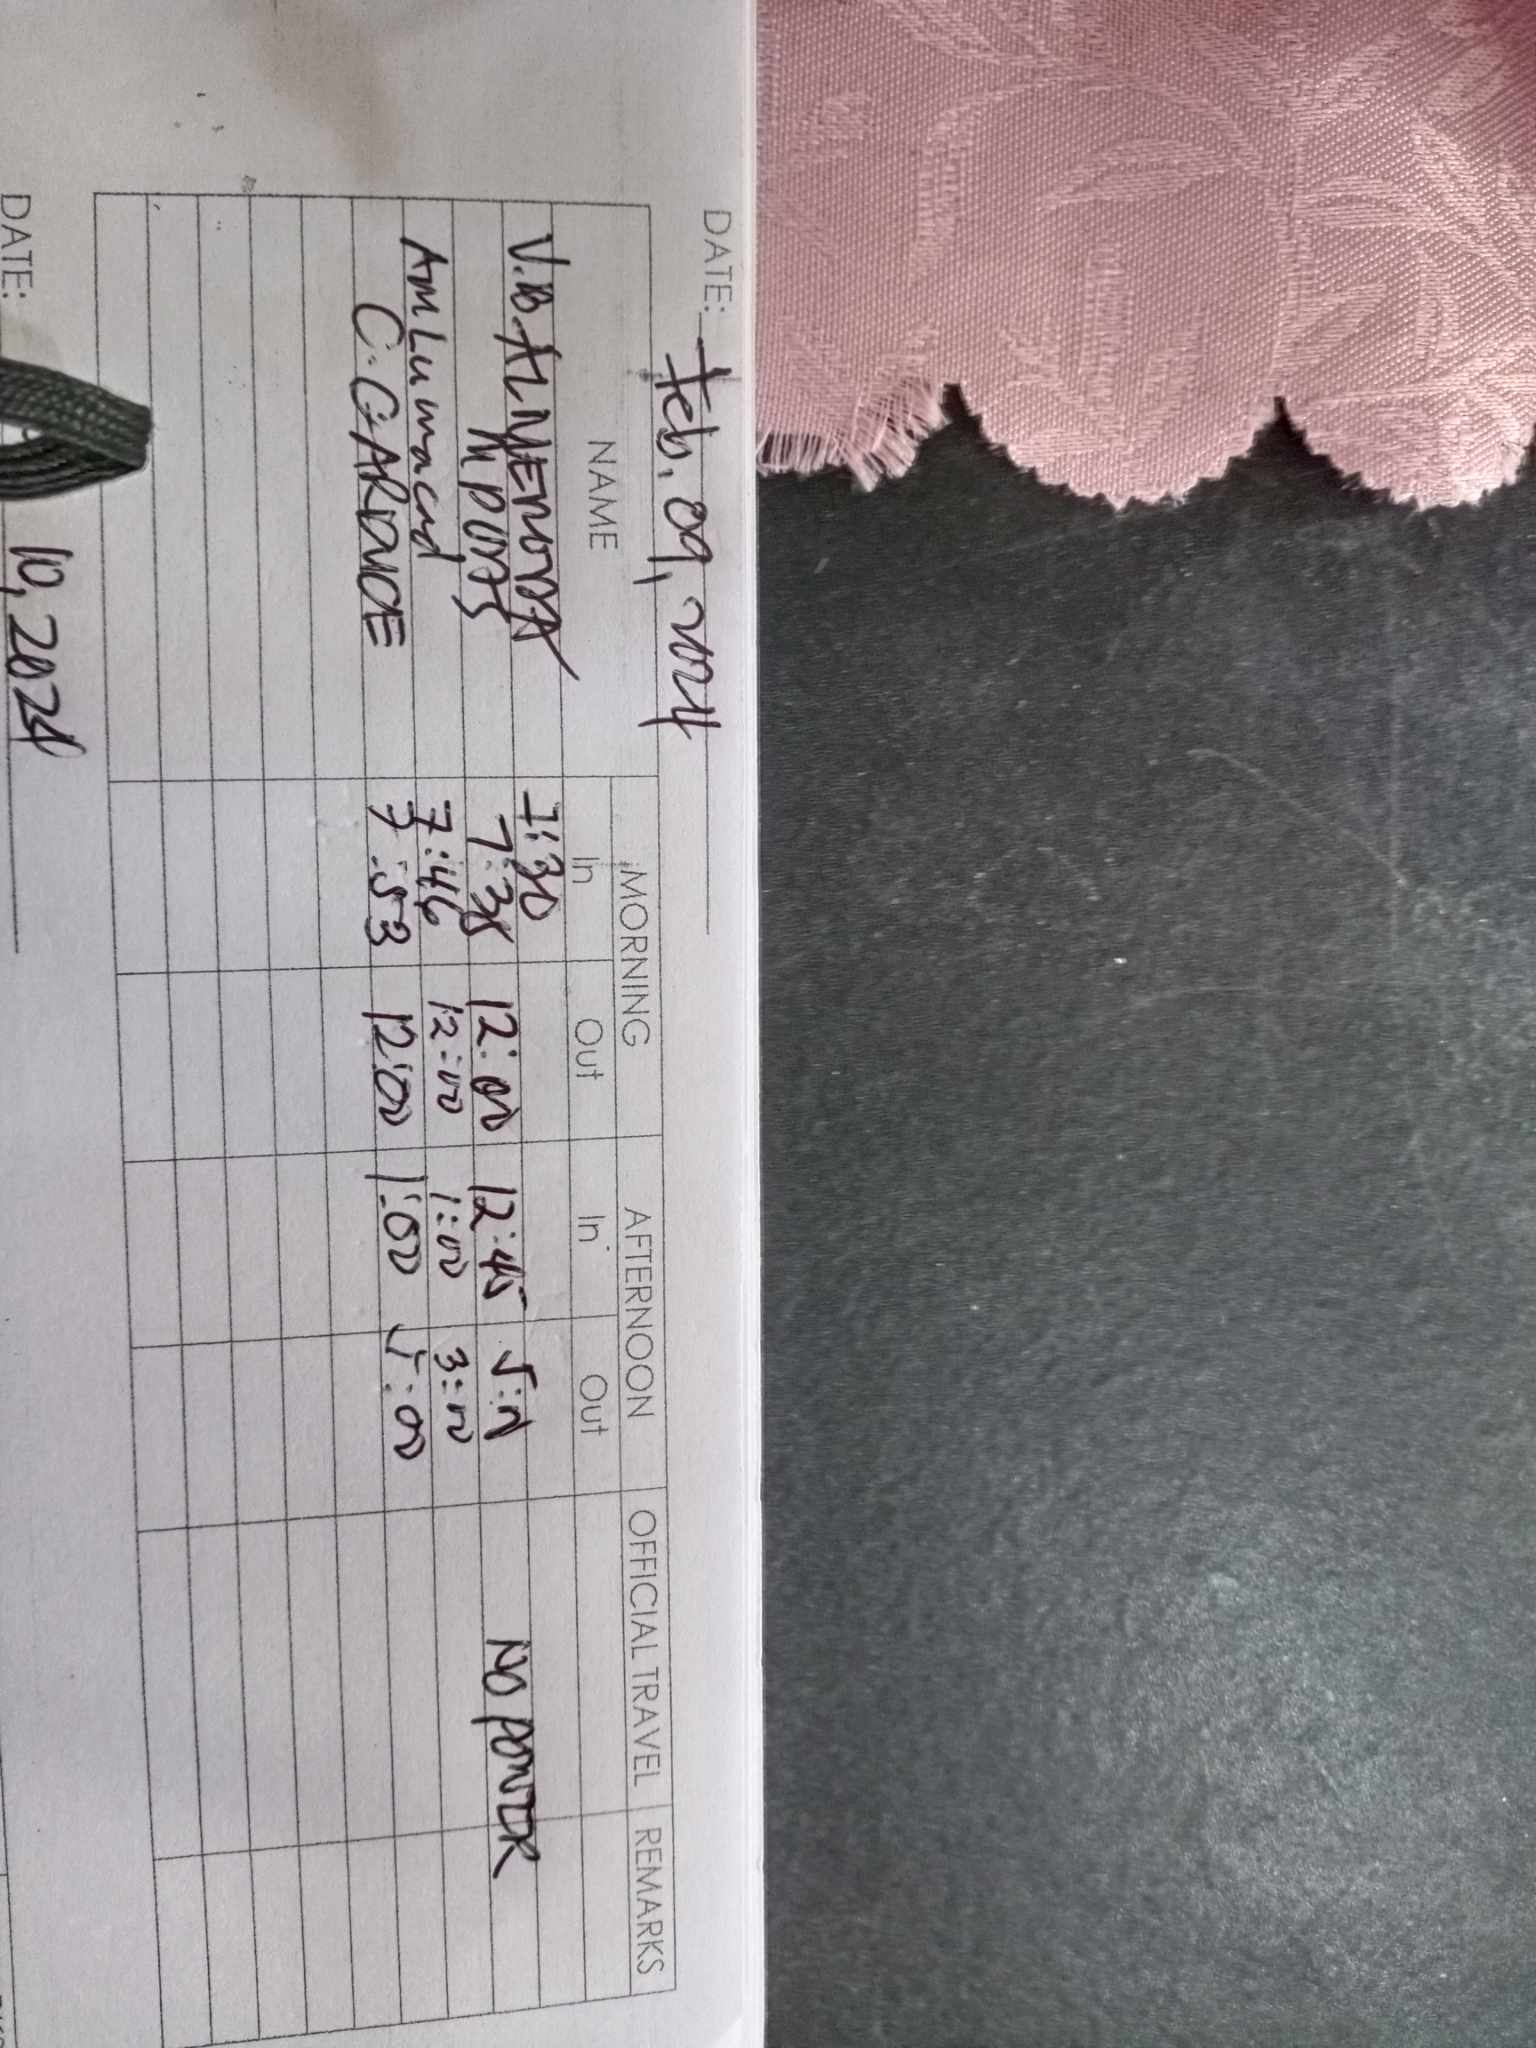 DATE: Feb. 09, 2024
NAME MORNING AFTERNOON OFFICIAL TRAVEL REMARKS
In Out In Out
V.B. ALMENODA 7:30
7:38 12:00 12:45 NO POWER
AM Lumacad 7:46 12:00 1:00 3:00
7:53 12:00 1:00 5:00
DATE: 10, 2024